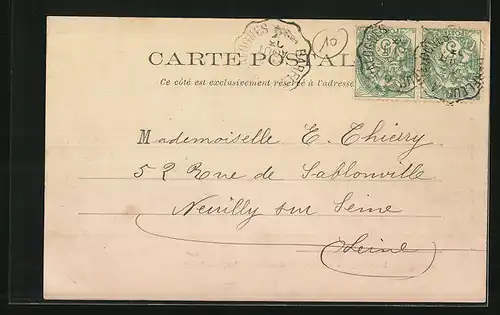 VALOGNES
BARFLEUR
10
CARTE POSTALE
Ce côté est exclusivement réservé à l'adresse
Mademoiselle E. Thierry
52 Rue de Sablonville
Neuilly sur Seine
(Seine)